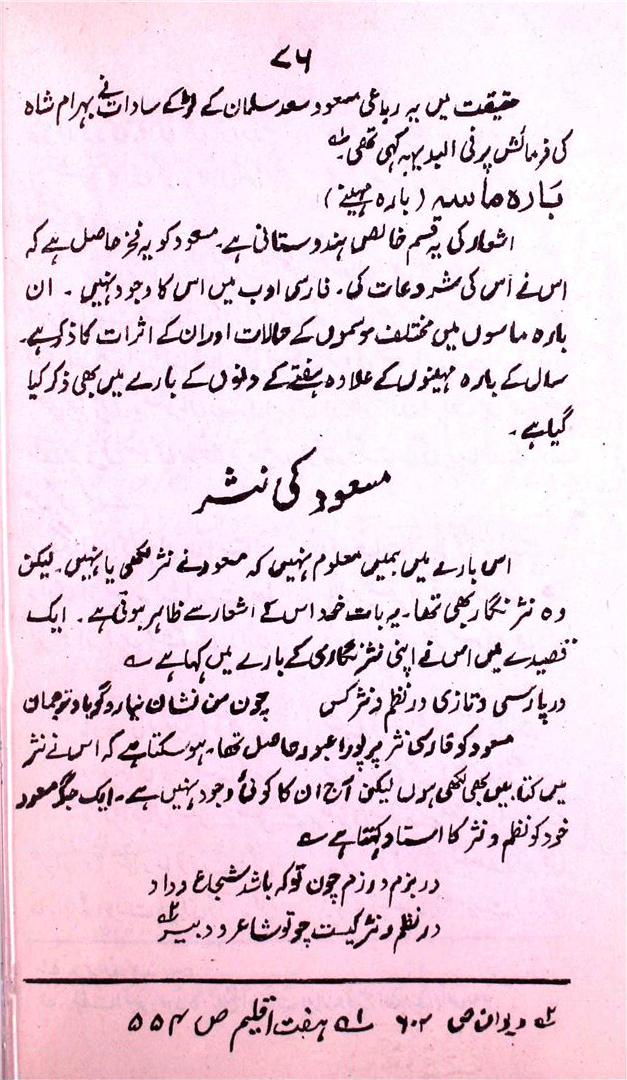 ۷۶
حقیقت میں یہ رباعی مسعود سعد سلمان کے لڑکے سادات نے بہرام شاہ
کی فرمائش پر فی البدیہہ کہی تھی۔ ۱؎
بارہ ماسہ (بارہ مہینے)
اشعار کی یہ قسم خالص ہندوستانی ہے۔ مسعود کو یہ فخر حاصل ہے کہ
اس نے اس کی شروعات کی۔ فارسی ادب میں اس کا وجود نہیں۔ ان
بارہ ماسوں میں مختلف موسموں کے حالات اور ان کے اثرات کا ذکر ہے۔
سال کے بارہ مہینوں کے علاوہ ہفتے کے دنوں کے بارے میں بھی ذکر کیا
گیا ہے۔
مسعود کی نثر
اس بارے میں ہمیں معلوم نہیں کہ مسعود نے نثر لکھی یا نہیں۔ لیکن
وہ نثر نگار بھی تھا۔ یہ بات خود اس کے اشعار سے ظاہر ہوتی ہے۔ ایک
قصیدے میں اس نے اپنی نثر نگاری کے بارے میں کہا ہے ؎
در پارسی و تازی در نظم و نثر کس چون من نشان نیارد گویا و ترجمان
مسعود کو فارسی نثر پر پورا عبور حاصل تھا۔ ہو سکتا ہے کہ اس نے نثر
میں کتابیں بھی لکھی ہوں لیکن آج ان کا کوئی وجود نہیں ہے۔ ایک جگہ مسعود
خود کو نظم و نثر کا استاد کہتا ہے ؎
در بزم و رزم چون تو کہ باشد شجاع و راد
در نظم و نثر کیست چو تو شاعر و دبیر ۲؎
۲؎ دیوان ص ۶۰۲ ۱؎ ہفت اقلیم ص ۵۵۴